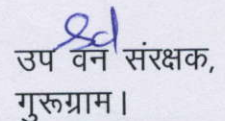 Sd
उप वन संरक्षक,
गुरूग्राम।